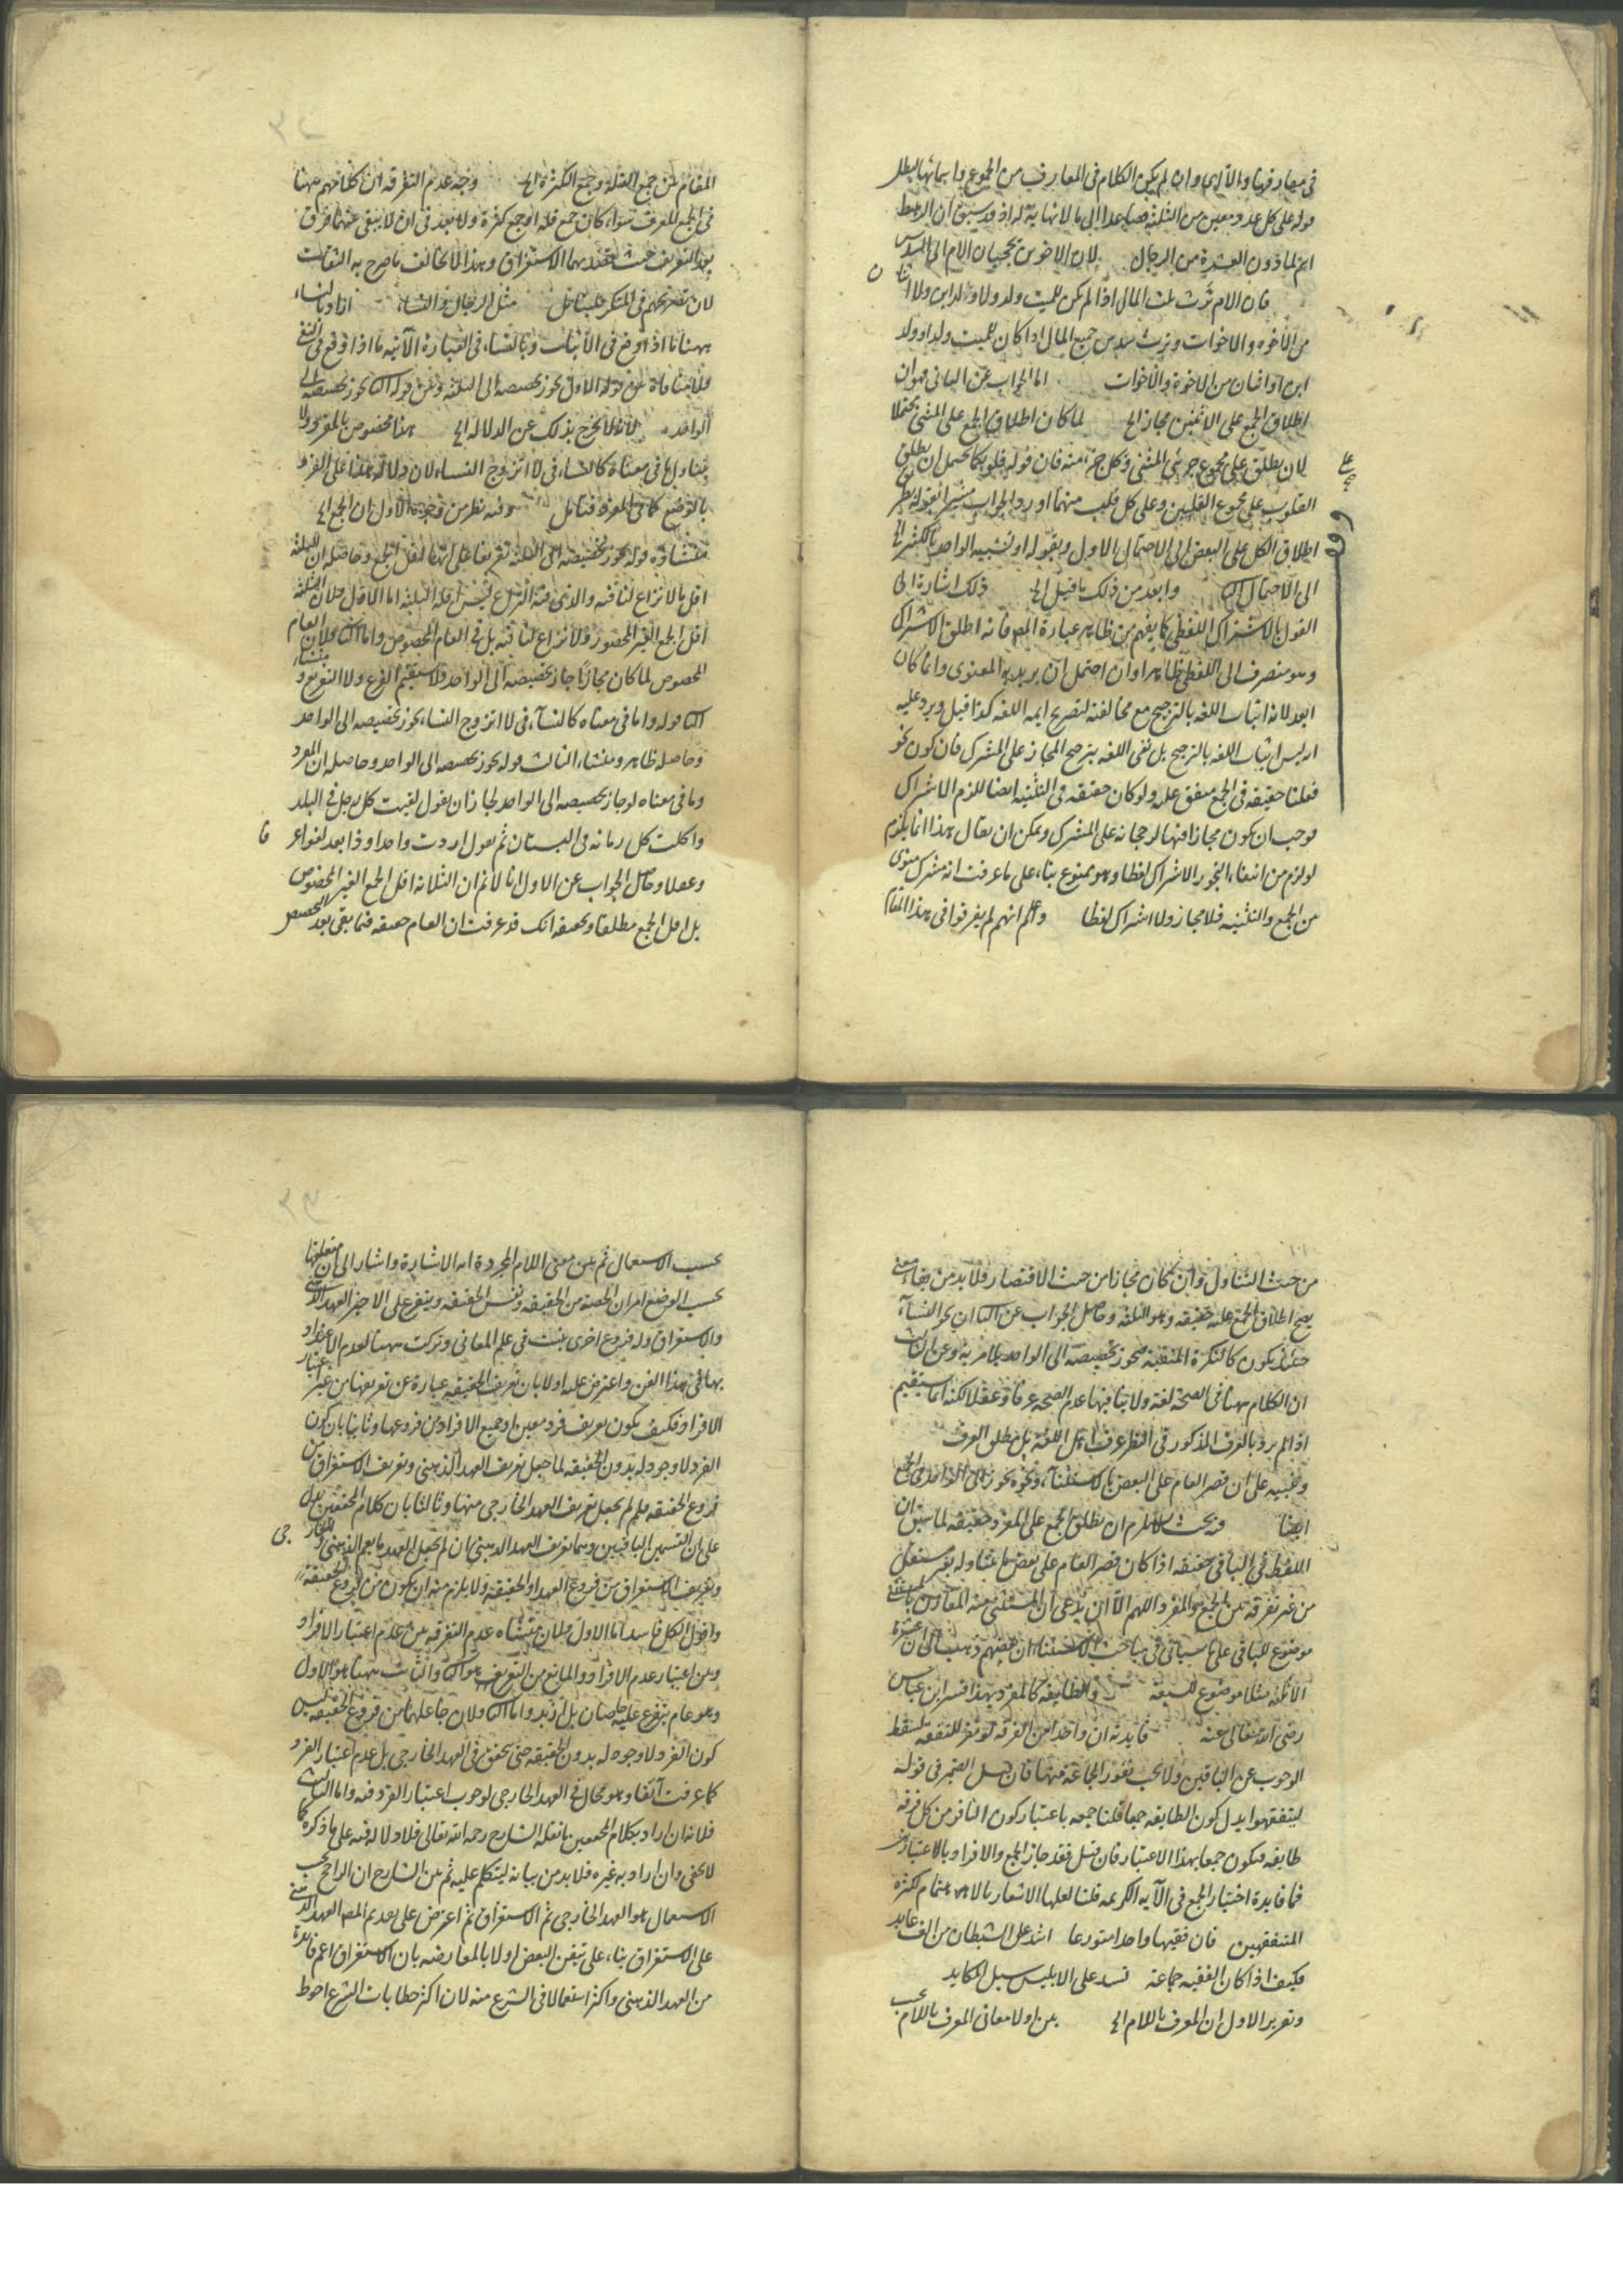 في معارفها والآلي وان لم يكن الكلام في المعارف من الجموع واسمائها يبطل
قوله على كل عدد معين من الثلثة فصاعدا الى ما لا نهاية له اذ قد سبق ان الرهط
اسم لما دون العشرة من الرجال لان الاخوين يحجبان الام الى السدس
فان الام ترث ثلث المال اذا لم يكن للميت ولد ولا ولد ابن ولا اثنان
من الاخوة والاخوات وترث سدس جميع المال اذا كان للميت ولد او ولد
ابن او اثنان من الاخوة والاخوات اما الجواب عن الثاني فهو ان
اطلاق الجمع على الاثنين مجاز الخ لما كان اطلاق الجمع على المثنى محتملا
لان يطلق على مجموع جزئي المثنى وكل جزء منه فان قوله قلوبكما يحتمل ان يطلق
القلوب على مجموع القلبين وعلى كل قلب منهما اورد الجواب مشيرا بقوله بطريق
اطلاق الكل على البعض الى الاحتمال الاول وبقوله او تشبيه الواحد بالكثير الخ
الى الاحتمال الثاني وابعد من ذلك ما قيل الخ ذلك اشارة الى
القول بالاشتراك اللفظي كما يفهم من ظاهر عبارة المص فانه اطلق الاشتراك
وهو منصرف الى اللفظي ظاهرا وان احتمل ان يريد به المعنوي وانما كان
ابعد لانه اثبات اللغة بالترجيح مع مخالفته لتصريح ايمة اللغة كذا قيل ويرد عليه
انه ليس اثبات اللغة بالترجيح بل نفى اللغة بترجيح المجاز على المشترك فان كون نحو
فعلنا حقيقة في الجمع متفق عليه ولو كان حقيقة في التثنية ايضا للزم الاشتراك
فوجب ان يكون مجازا فيها لرجحانه على المشترك ويمكن ان يقال هذا انما يلزم
لو لزم من انتفاء التجوز الاشتراك لفظا وهو ممنوع بناء على ما عرفت انه مشترك معنوى
من الجمع والتثنية فلا مجاز ولا اشتراك لفظا واعلم انهم لم يفرقوا في هذا المقام
المقام بين جمع القلة وجمع الكثرة الخ وجه عدم التفرقة ان كلامهم ههنا
في الجمع المعرف سواء كان جمع قلة او جمع كثرة ولا بعد في ان لا يبقى عنهما فرق
بعد التعريف حيث يقصد بهما الاستغراق وهذا لا يخالف ما صرح به الثقات
لان تصريحهم في المنكر فليتأمل مثل الرجال والنساء اراد بالنساء
ههنا ما اذا وقع في الاثبات وبالنساء في العبارة الآتية ما اذا وقع في النفى
فلا منافاة بين قوله الاول يجوز تخصيصه الى الثلثة وبين قوله الثاني يجوز تخصيصه الى
الواحد لانه لا يخرج بذلك عن الدلالة الخ هذا مخصوص بالمفرد ولا
يتناول ما في معناه كالنساء في لا اتزوج النساء لان دلالة هذا على المفرد
بالوضع كما في المفرد فتأمل وفيه نظر من وجوه الاول ان الجمع الخ
منشاؤه قوله يجوز تخصيصه الى الثلثة تفريعا على انها اقل الجمع وحاصله ان الثلثة
اقل ما لا نزاع لنا فيه والذى فيه النزاع ليس اقله الثلثة اما الاول فلان الثلثة
اقل الجمع الغير المحصور ولا نزاع لنا فيه بل في العام المخصوص واما الثاني فلان العام
المخصوص لما كان مجازا جاز تخصيصه الى الواحد فلا يستقيم الفرع ولا التفريع ومنشاء
الثاني قوله وما في معناه كالنساء في لا اتزوج النساء يجوز تخصيصه الى الواحد
وحاصله ظاهر ومنشاء الثالث قوله يجوز تخصيصه الى الواحد وحاصله ان المفرد
وما في معناه لو جاز تخصيصه الى الواحد لجاز ان يقول لقيت كل رجل في البلد
واكلت كل رمانة في البستان ثم يقول اردت واحدا وذا يعد لغوا عرفا
وعقلا وحاصل الجواب عن الاول انا لا نم ان الثلاثة اقل الجمع الغير المخصوص
بل اقل الجمع مطلقا وتحقيقه انك قد عرفت ان العام حقيقة فيما بقى بعد التخصيص
من حيث التناول وان كان مجازا من حيث الاقتصار ولا بد من بقاء معنى
يصح اطلاق الجمع عليه حقيقة وهو الثلثة وحاصل الجواب عن الثاني ان نحو النساء
حينئذ يكون كالنكرة المنفية فيجوز تخصيصه الى الواحد بلا مرية وعن الثالث
ان الكلام ههنا في الصحة لغة ولا ينافيها عدم الصحة عرفا وعقلا لكنه انما يستقيم
اذا لم يرد بالعرف المذكور في النظر عرف اهل اللغة بل مطلق العرف
وتنبيه على ان قصر العام على البعض بالاستثناء ونحوه يجوز الى الواحد في الجمع
ايضا فيه بحث يلزم ان يطلق الجمع على المفرد حقيقة لما سبق ان
اللفظ في الباقي حقيقة اذا كان قصر العام على بعض ما يتناوله بغير مستقل
من غير تفرقة بين الجمع والمفرد اللهم الا ان يدعى ان المستثنى منه المقارن بالمستثنى
موضوع للباقي على ما سيأتي في مباحث الاستثناء ان بعضهم ذهب الى ان عشرة
الا ثلثة مثلا موضوع للسبعة والطايفة كالمفرد بهذا فسر ابن عباس
رضى الله تعالى عنه فايدته ان واحدا من الفرقة لو نفر للتفقه لسقط
الوجوب عن الباقين ولا يجب نفور الجماعة منها فان قيل الضمير في قوله
ليتفقهوا يدل كون الطايفة جمعا قلنا جمعه باعتبار كون النافر من كل فرقة
طايفة فيكون جمعا بهذا الاعتبار فان قيل فقد جاز الجمع والافراد بالاعتبارين
فما فايدة اختيار الجمع في الآية الكريمة قلنا لعلها الاشعار بالاهتمام لكثرة
المتفقهين فان فقيها واحدا متورعا اشد على الشيطان من الف عابد
فكيف اذا كان الفقيه جماعة تسد على الابليس سبل المكايد
وتقرير الاول ان المعرف باللام الخ بين اولا معانى المعرف باللام بحسب
بحسب الاستعمال ثم بين معنى اللام المجردة انه الاشارة واشار الى ان متعلقها
بحسب الوضع امران الحصة من الحقيقة ونفس الحقيقة ويتفرع على الاخير العهد الذهنى
والاستغراق وله فروع اخرى بينت في علم المعانى وتركت ههنا لعدم الاعتداد
بها في هذا الفن واعترض عليه اولا بان تعريف الحقيقة عبارة عن تعريفها من غير اعتبار
الافراد فكيف يكون تعريف فرد معين او جميع الافراد من فروعها وثانيا بان كون
الفرد لا وجود له بدون الحقيقة لما جعل تعريف العهد الذهنى وتعريف الاستغراق من
فروع الحقيقة فلم لم يجعل تعريف العهد الخارجى منها وثالثا بان كلام المحققين يدل
على ان القسمين الباقيين وهما تعريف العهد الذهنى ان لم يجعل العهد ما يعم الذهنى والخارجى
وتعريف الاستغراق من فروع العهد او الحقيقة ولا يلزم منه ان يكون من فروع الحقيقة
واقول الكل فاسد اما الاول فلان منشاه عدم التفرقة بين عدم اعتبار الافراد
وبين اعتبار عدم الافراد والمانع من التعريف هو الثاني والثابت ههنا هو الاول
وهو عام يتفرع عليه خاصان بل ازيد واما الثاني فلان جاعلهما من فروع الحقيقة ليس
كون الفرد لا وجود له بدون الحقيقة حتى يتحقق في العهد الخارجى بل عدم اعتبار الفرد
كما عرفت آنفا وهو محال في العهد الخارجى لوجوب اعتبار الفرد فيه واما الثالث
فلانه ان اراد بكلام المحققين ما نقله الشارح رحمه الله تعالى فلا دلالة فيه على ما ذكره كما
لا يخفى وان اراد به غيره فلا بد من بيانه ليتكلم عليه ثم بين الشارح ان الراجح بحسب
الاستعمال هو العهد الخارجى ثم الاستغراق ثم اعترض على تقديم المص العهد الذهنى
على الاستغراق بناء على تيقن البعض اولا بالمعارضة بان الاستغراق اعم فايدة
من العهد الذهنى واكثر استعمالا في الشرع منه لان اكثر خطابات الشرع احوط